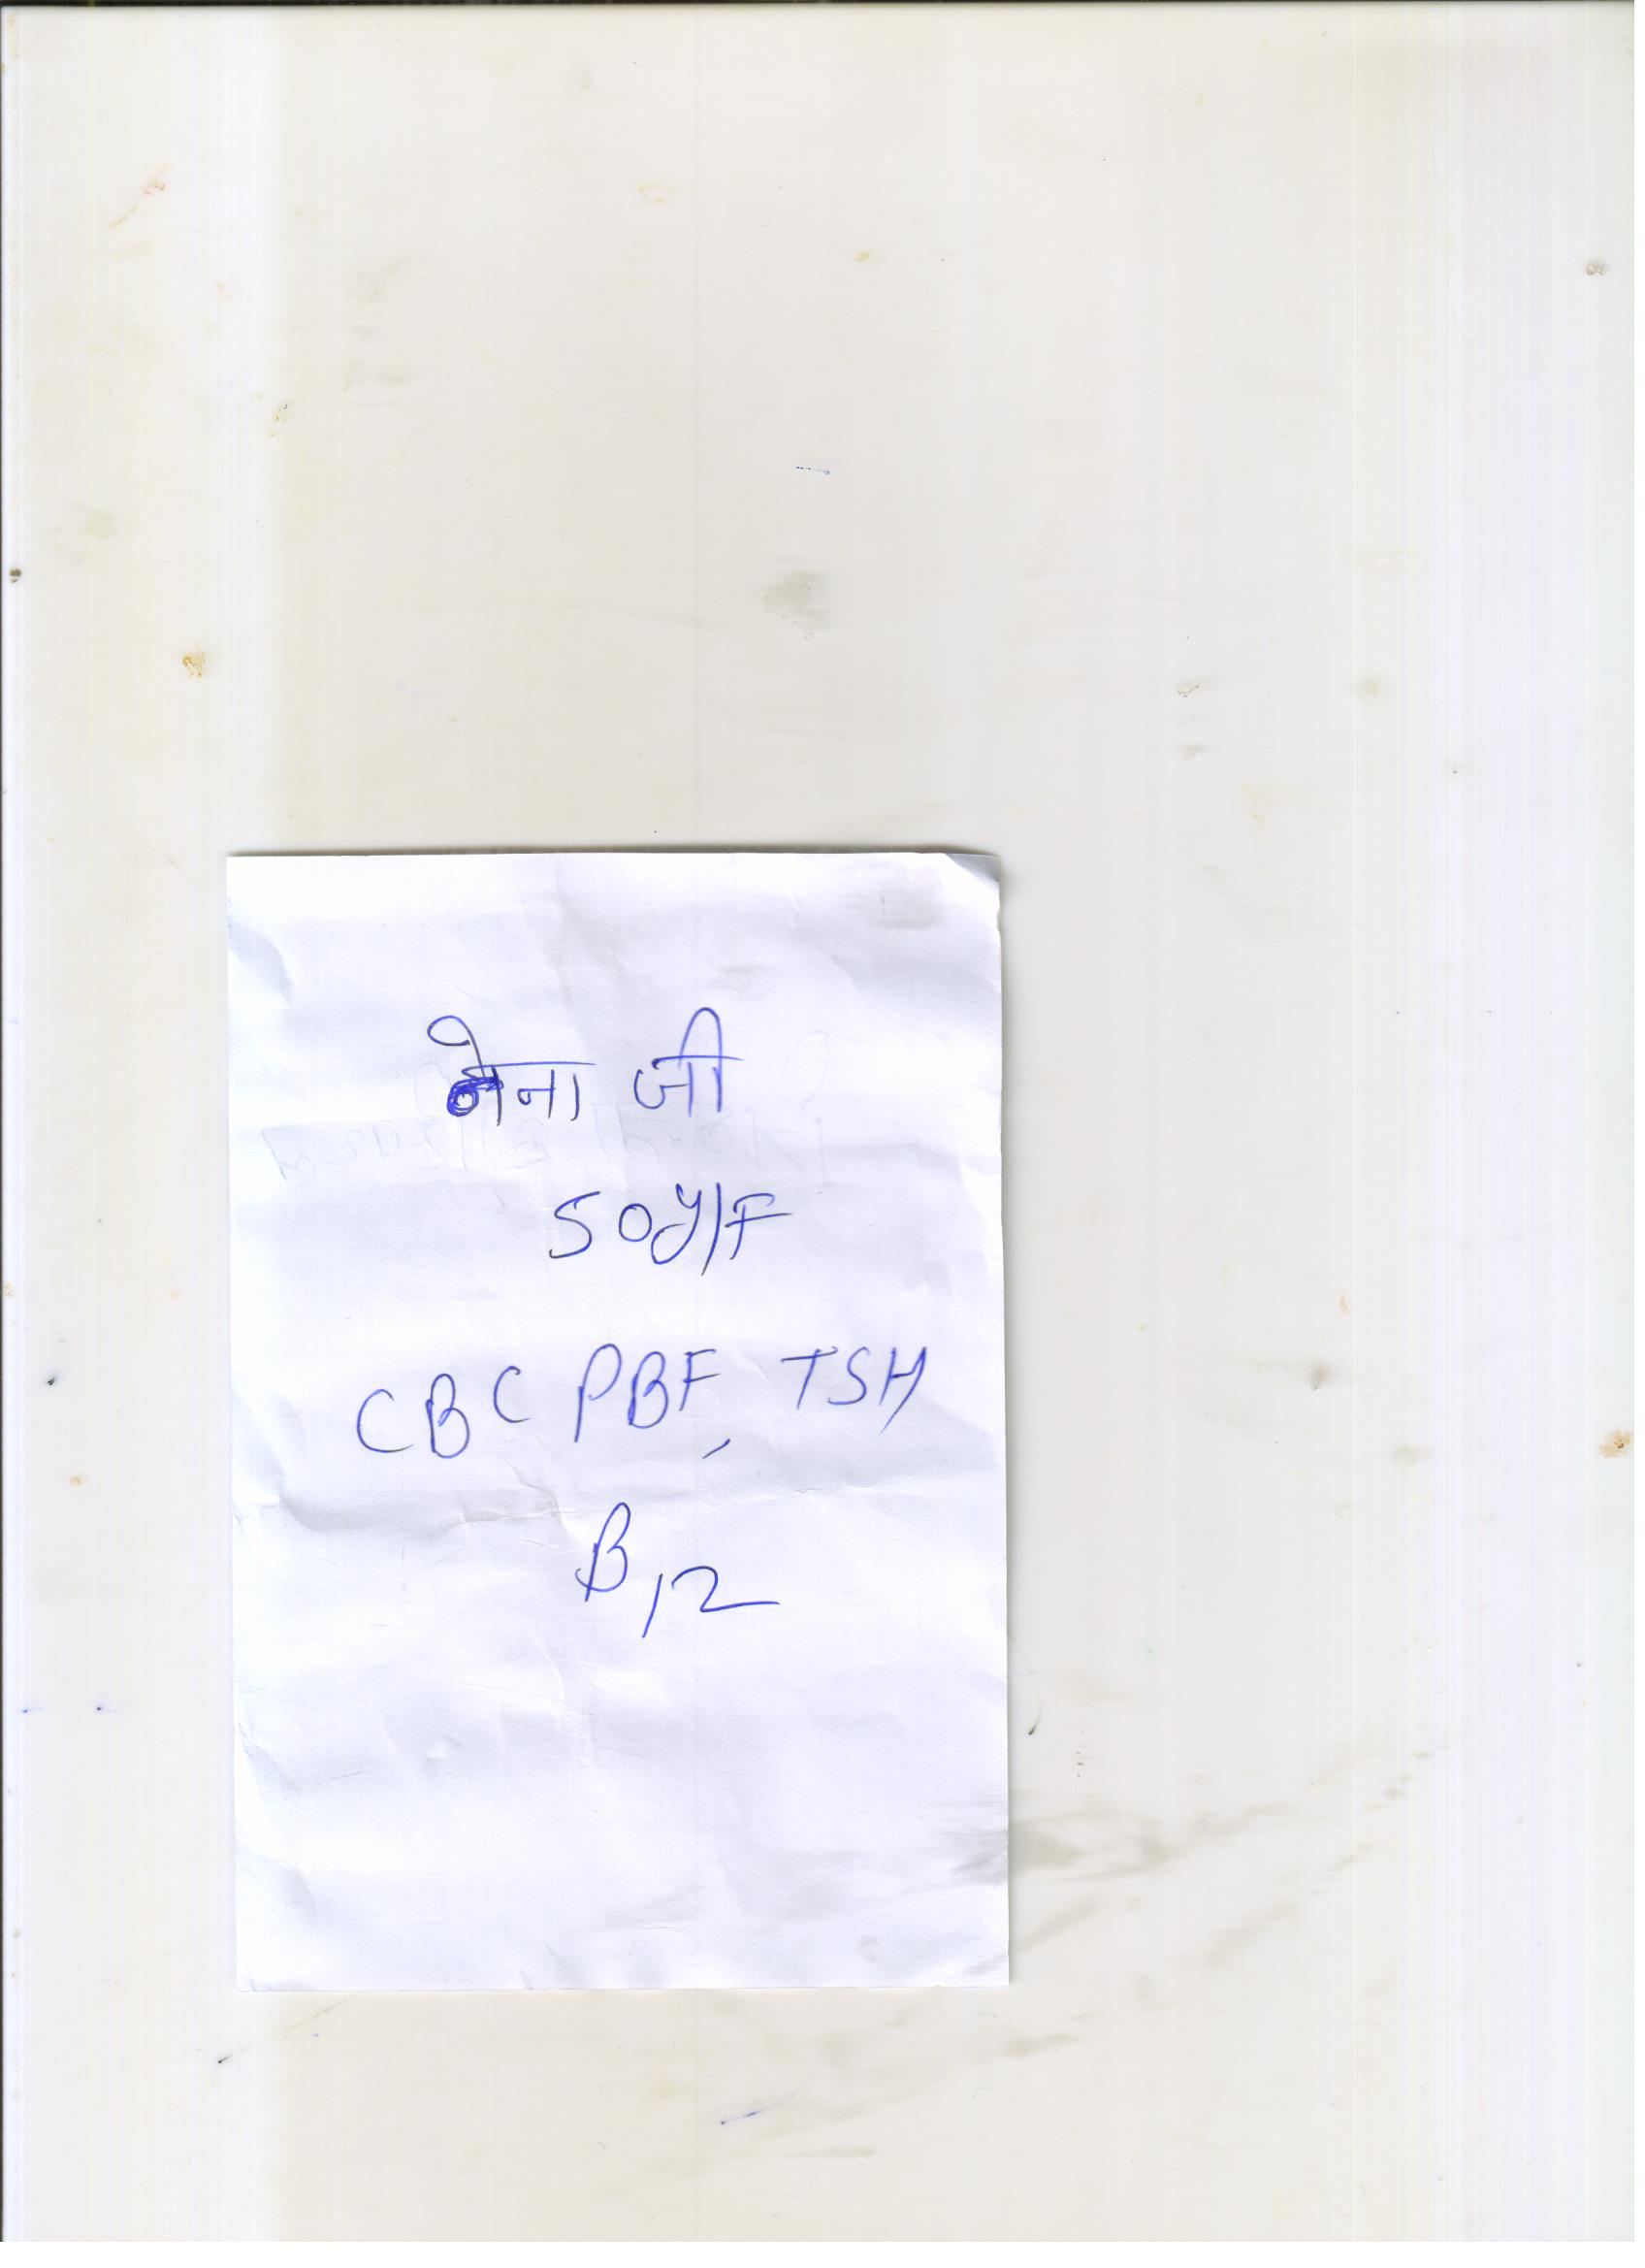 नेना जी
50y/F
CBC PBF, TSH
B12